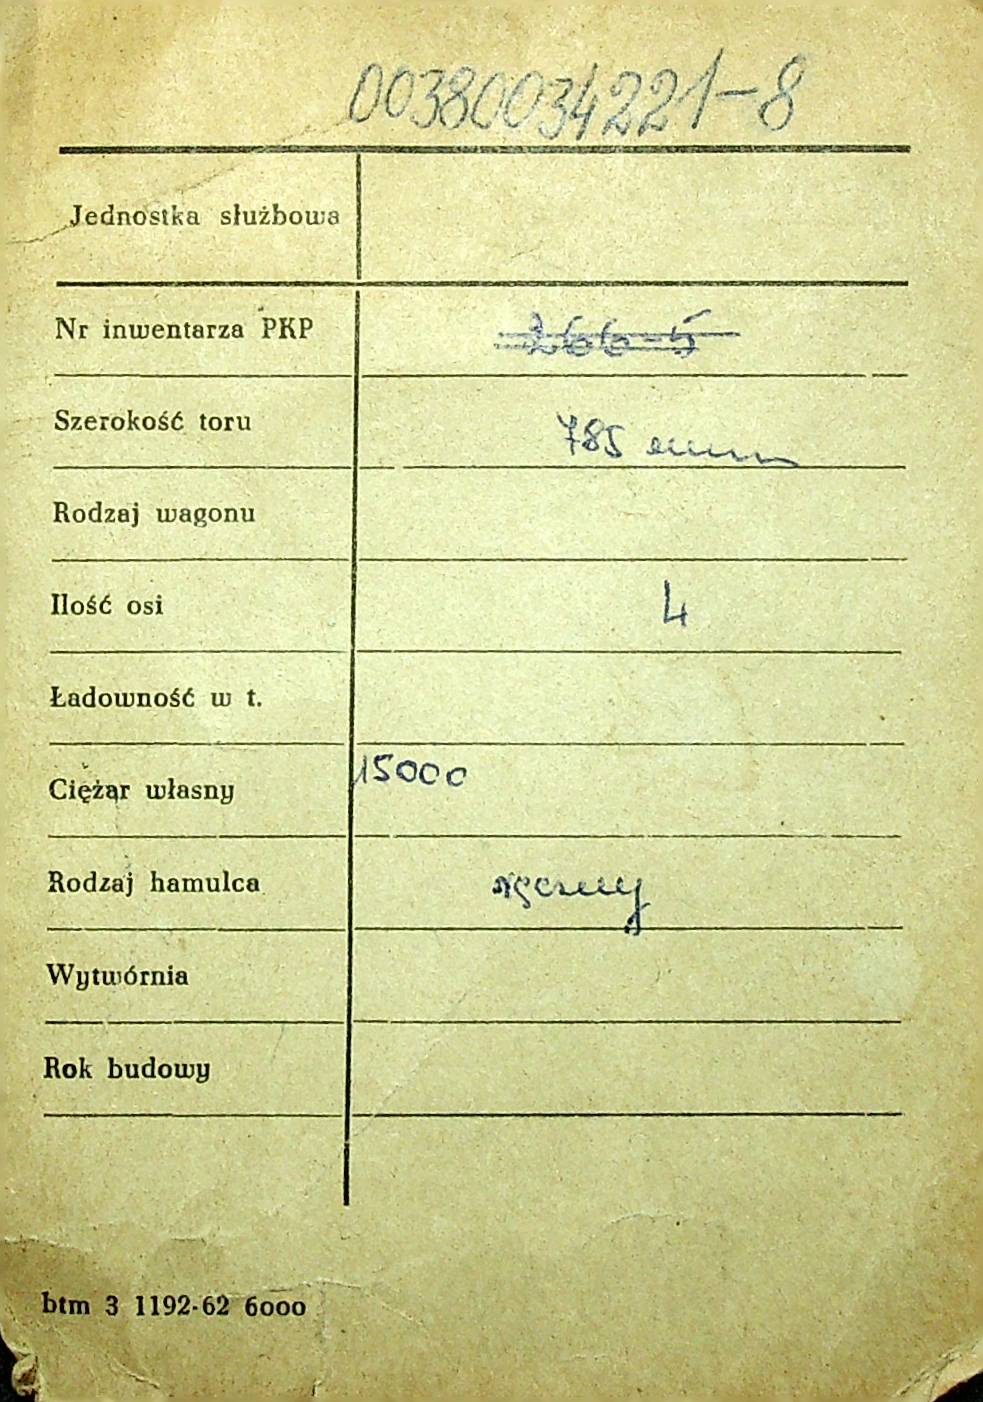 00380034221-8
Jednostka służbowa
Nr inwentarza PKP 266-5
Szerokość toru 785 mm
Rodzaj wagonu
Ilość osi 4
Ładowność w t.
Ciężar własny 15000
Rodzaj hamulca ręczny
Wytwórnia
Rok budowy
btm 3 1192-62 6000